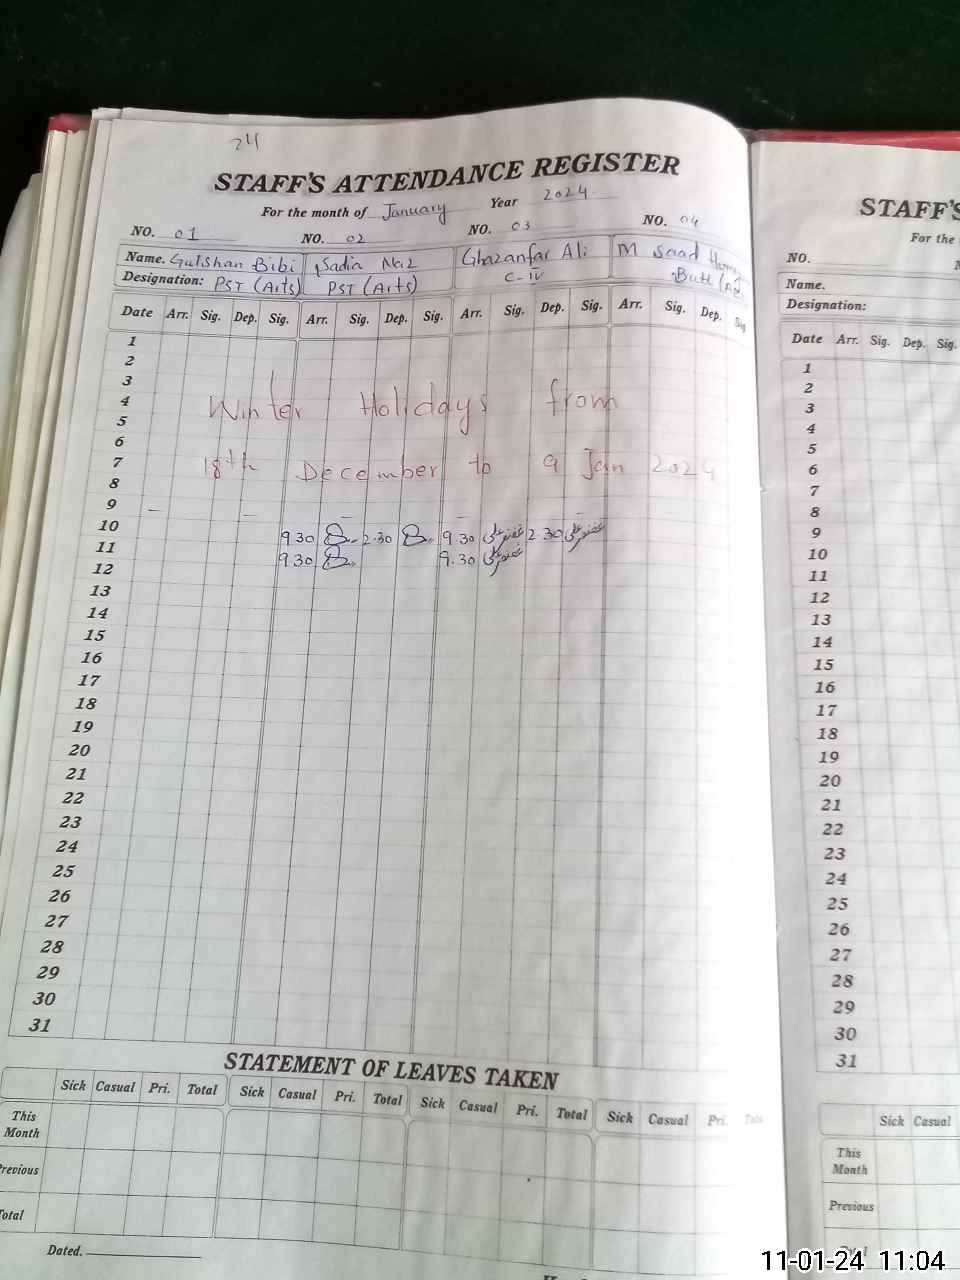 24
STAFF'S ATTENDANCE REGISTER
For the month of January Year 2024
NO. 01 NO. 02 NO. 03 NO. 04
Name. Gulshan Bibi Sadia Naz Ghazanfar Ali M Saad
Designation: PST (Arts) PST (Arts) C-IV Butt
Date Arr. Sig. Dep. Sig. Arr. Sig. Dep. Sig. Arr. Sig. Dep. Sig. Arr. Sig. Dep. Sig.
1
2
3
4
Winter Holidays from
5
6
7
18th December to 9 Jan 2024
8
9
10
9 30 2.30 9 30 غضنفر علی 2 30 غضنفر علی
11
9 30 9.30 غضنفر علی
12
13
14
15
16
17
18
19
20
21
22
23
24
25
26
27
28
29
30
31
STATEMENT OF LEAVES TAKEN
Sick Casual Pri. Total Sick Casual Pri. Total Sick Casual Pri. Total Sick Casual Pri. Total
This
Month
Previous
Total
Dated.
STAFF'S
For the
NO.
Name.
Designation:
Date Arr. Sig. Dep. Sig.
1
2
3
4
5
6
7
8
9
10
11
12
13
14
15
16
17
18
19
20
21
22
23
24
25
26
27
28
29
30
31
Sick Casual
This
Month
Previous
Total
11-01-24 11:04